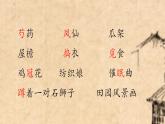 芍药 凤仙 瓜架
屋檐 捣衣 觅食
鸡冠花 纺织娘 催眠曲
蹲着一对石狮子 田园风景画